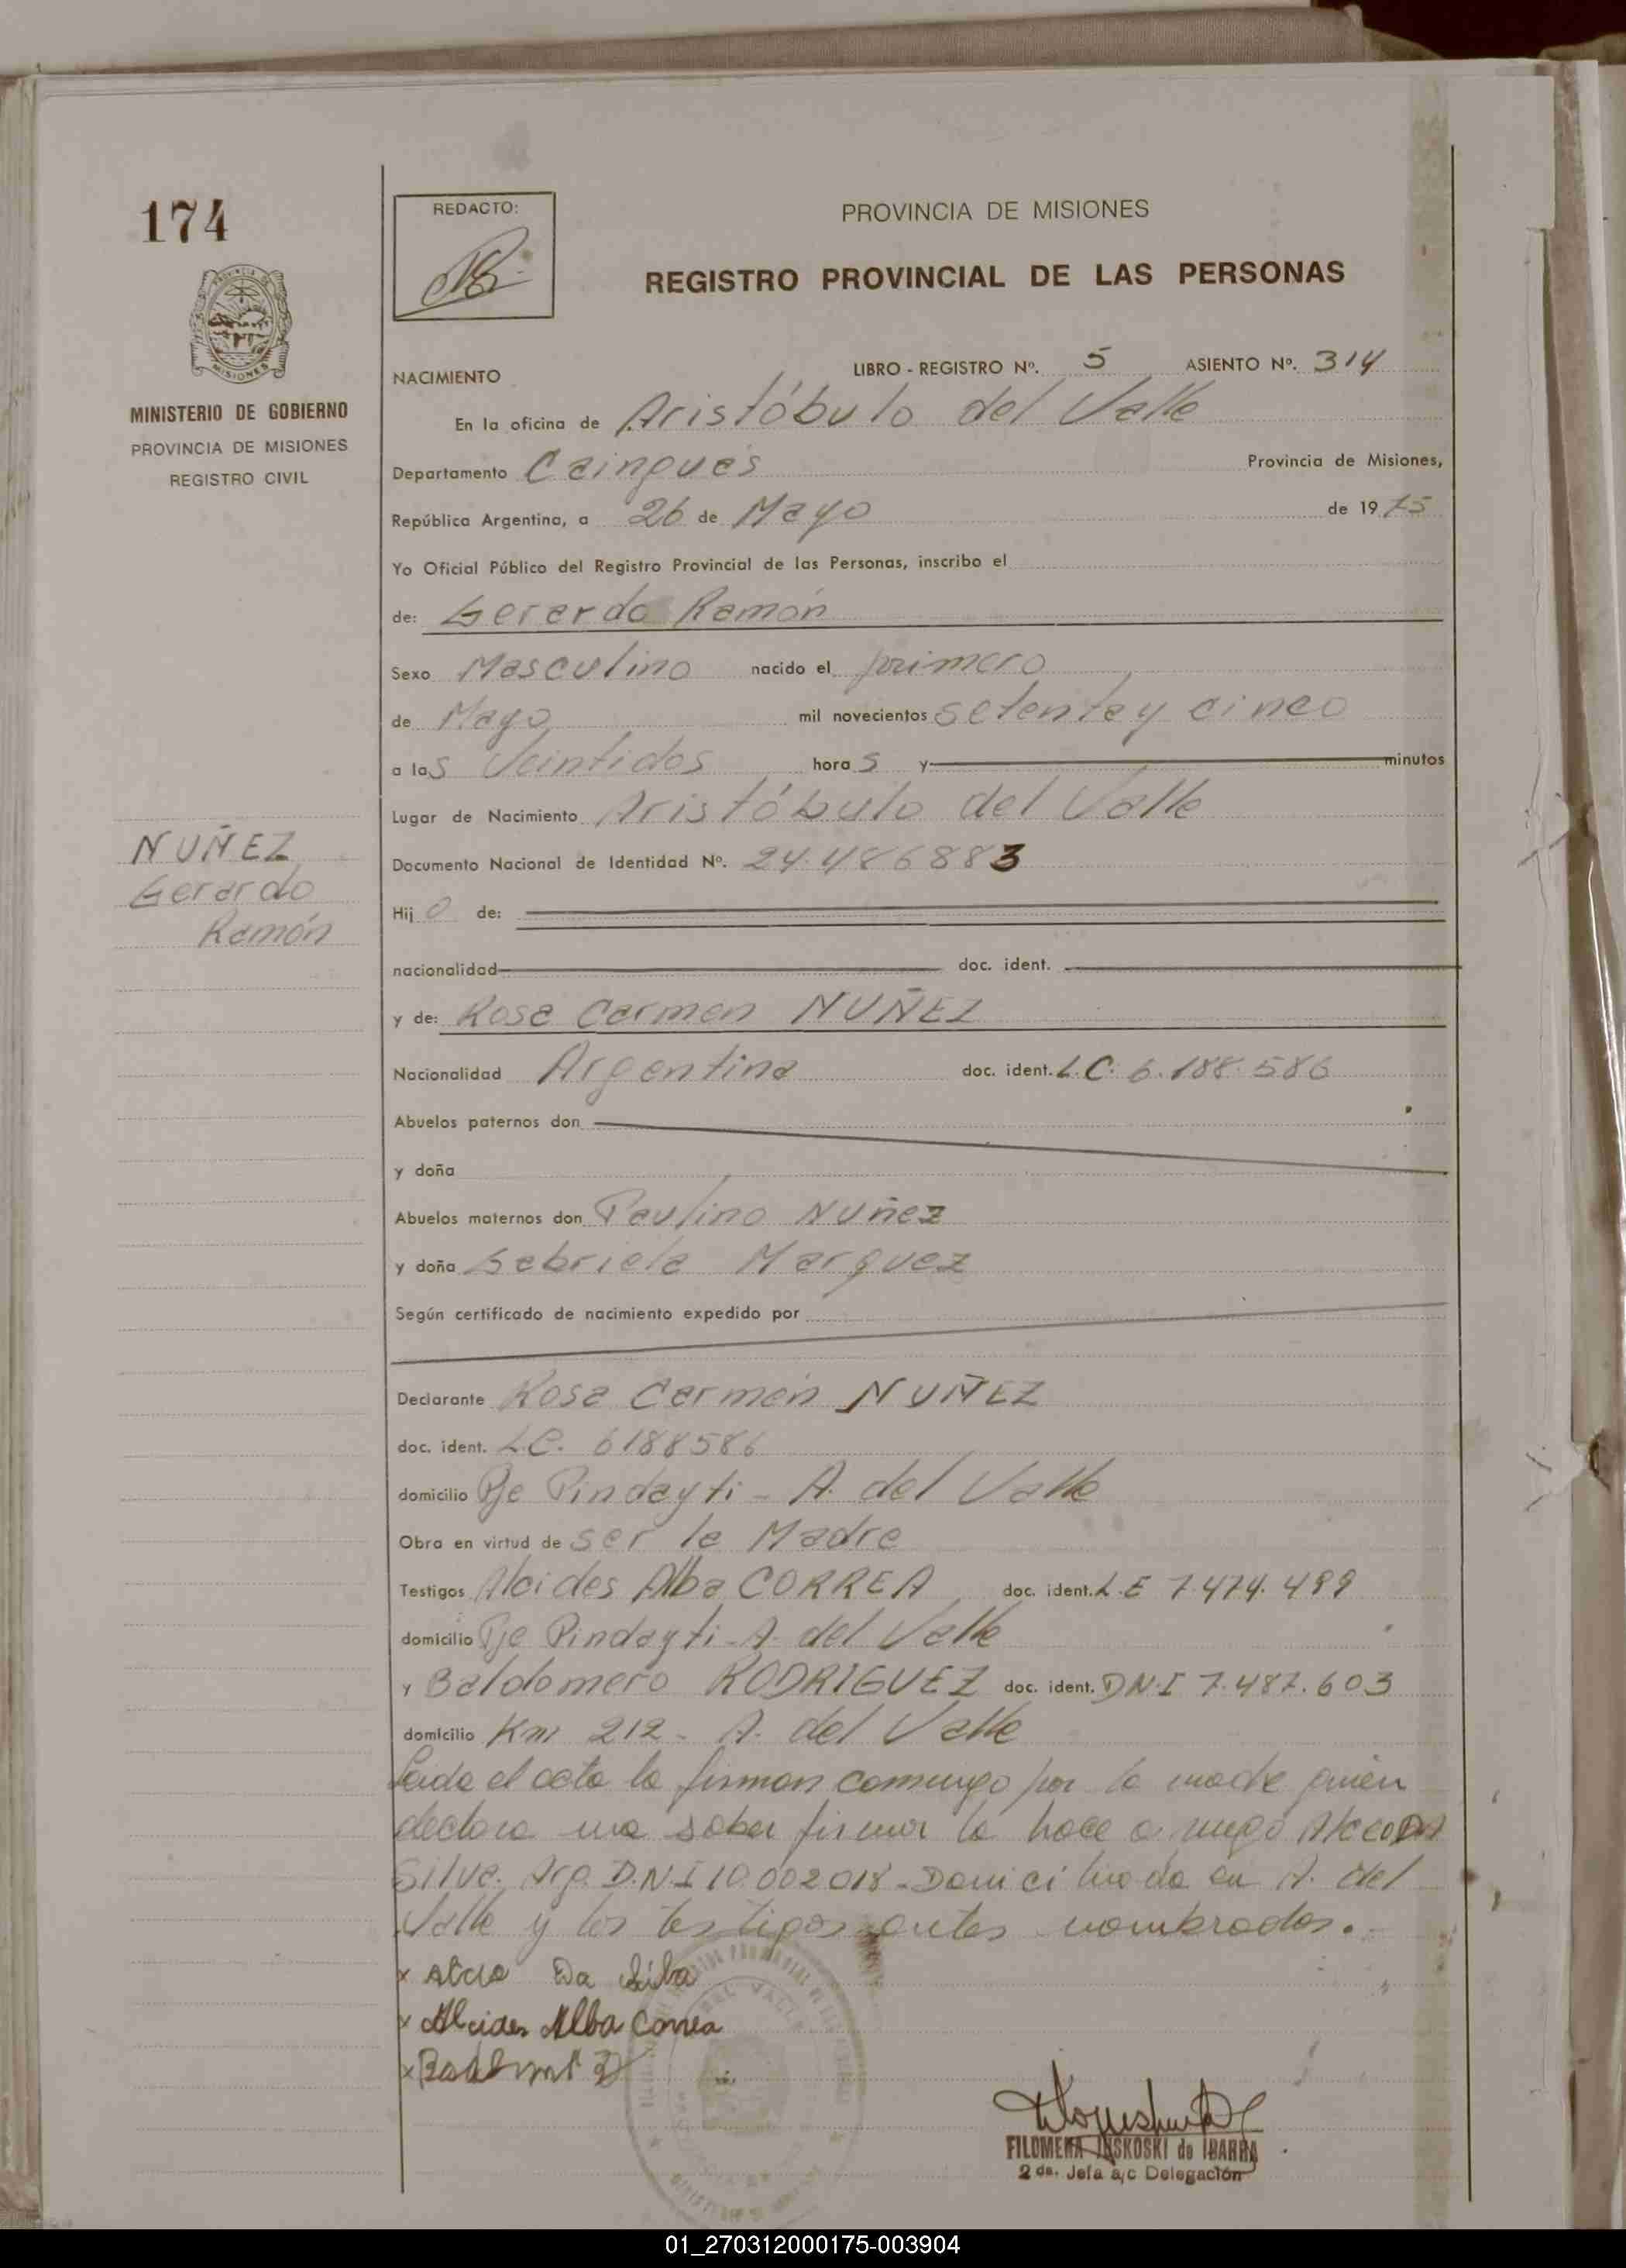 174
REDACTO:
PROVINCIA DE MISIONES
REGISTRO PROVINCIAL DE LAS PERSONAS
MISIONES
MINISTERIO DE GOBIERNO
PROVINCIA DE MISIONES
REGISTRO CIVIL
NACIMIENTO LIBRO - REGISTRO Nº. 5 ASIENTO Nº. 314
En la oficina de Aristóbulo del Valle
Departamento Cainguás Provincia de Misiones,
República Argentina, a 26 de Mayo de 1975
Yo Oficial Público del Registro Provincial de las Personas, inscribo el
de: Gerardo Ramón
Sexo Masculino nacido el primero
de Mayo mil novecientos setenta y cinco
a las Veintidos horas y minutos
Lugar de Nacimiento Aristóbulo del Valle
NUÑEZ
Gerardo
Ramón
Documento Nacional de Identidad Nº. 24.486883
Hijo de:
nacionalidad doc. ident.
y de: Rosa Carmen NUÑEZ
Nacionalidad Argentina doc. ident. L.C. 6.188.586
Abuelos paternos don
y doña
Abuelos maternos don Paulino Nuñez
y doña Gabriela Marquez
Según certificado de nacimiento expedido por
Declarante Rosa Carmen NUÑEZ
doc. ident. L.C. 6188586
domicilio Pje Pindayti - A. del Valle
Obra en virtud de ser la Madre
Testigos Alcides Alba CORREA doc. ident. L.E 7.474.499
domicilio Pje Pindayti - A. del Valle
y Baldomero RODRIGUEZ doc. ident. DN.I 7.487.603
domicilio Km 212 - A. del Valle
Leida el acta la firman conmigo por la madre quien
declara no saber firmar lo hace a ruego Alceo DA
Silva. Arg. D.N.I 10.002018 - Domiciliado en A. del
Valle y los testigos antes nombrados.
x Alceo Da Silva
x Alcides Alba Correa
x
FILOMENA JUSKOSKI de IBARRA
2 da. Jefa a/c Delegación
01_270312000175-003904